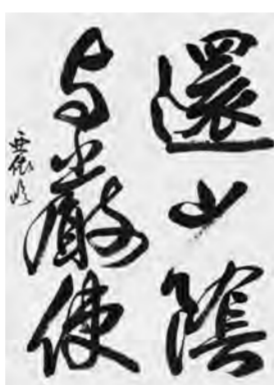 還山陰
与嚴使